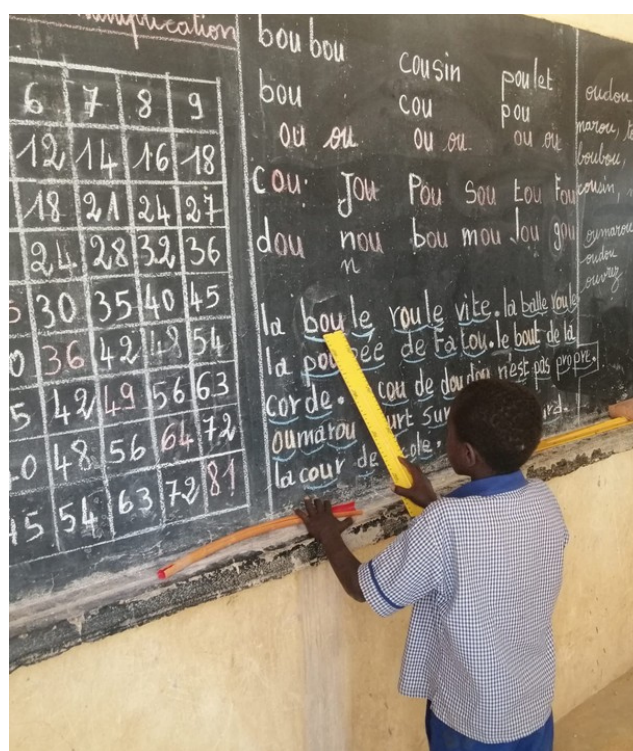 multiplication
6 7 8 9
12 14 16 18
18 21 24 27
24 28 32 36
30 35 40 45
36 42 48 54
42 49 56 63
48 56 64 72
45 54 63 72 81
boubou cousin poulet
bou cou pou
ou ou ou ou ou ou
cou jou pou sou tou fou
dou nou bou mou lou gou
n
la boule roule vite. la balle roule
la poupée de fatou. le bout de la
corde. cou de doudou n'est pas propre.
oumarou sur
la cour de
oudou
marou,
boubou,
cousin,
oumarou
oudou
ouvrez